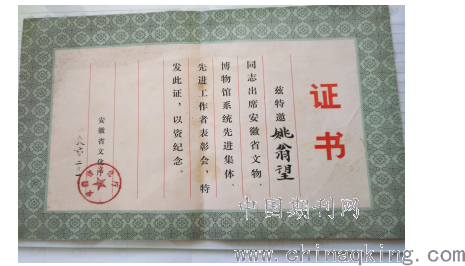 证书
兹特邀姚翁望
同志出席安徽省文物、
博物馆系统先进集体、
先进工作者表彰会,特
发此证,以资纪念。
安徽省文化
中国期刊网
www.chinaqking.com